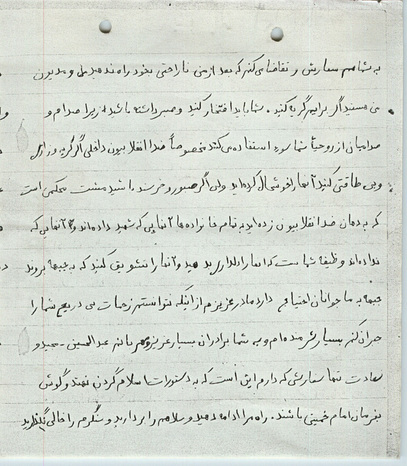 به شما هم سفارش و تقاضا می کنم که بعد از من ناراحتی بخود راه ندهید
می‌کنید اگر برایم گریه کنید. شما باید افتخار کنید و صبر داشته باشید زیرا صدام و
صدامیان از روحیهٔ شما سوء استفاده می‌کنند مخصوصاً ضد انقلابیون داخلی اگر گریه و زاری
وبی طاقتی کنید آنها را خوشحال کرده‌اید ولی اگر صبور و خرسند باشید مشت محکمی است
که به دهان ضد انقلابیون زده‌اید به تمام خانواده‌ها آنهایی که شهید داده‌اند و آنهایی که
نداده‌اند وظیفه شماست که آنها را دلداری بدهید و آنها را تشویق کنید که به جبهه بروند
جبهه به ما جوانان احتیاج دارد مادر عزیزم از اینکه نتوانستم زحمات بی دریغ شما را
جبران کنم بسیار شرمنده‌ام و به شما برادران بسیار عزیز عبدالحسین - حمید و
سعادت تنها سفارشی که دارم این است که به دستورات اسلام گردن نهند و گوش
بفرمان امام خمینی باشند. راه مرا ادامه دهید و سلاحم را بردارید و سنگرم را خالی نگذارید